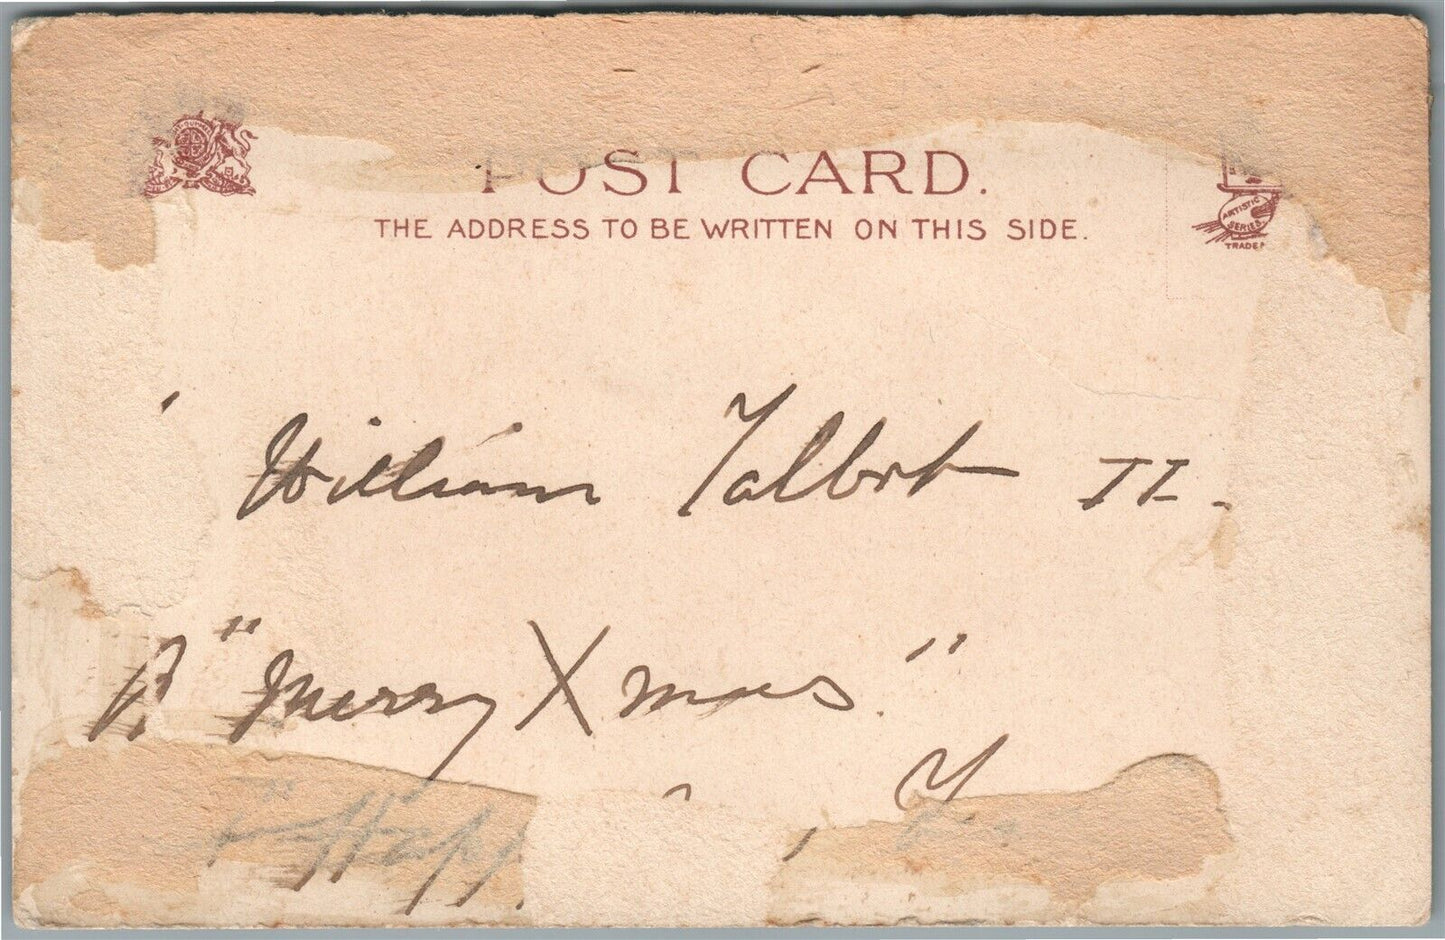 POST CARD.
THE ADDRESS TO BE WRITTEN ON THIS SIDE.
ARTISTIC
SERIES
TRADE
William Talbot II.
A "Merry Xmas."
"Happy